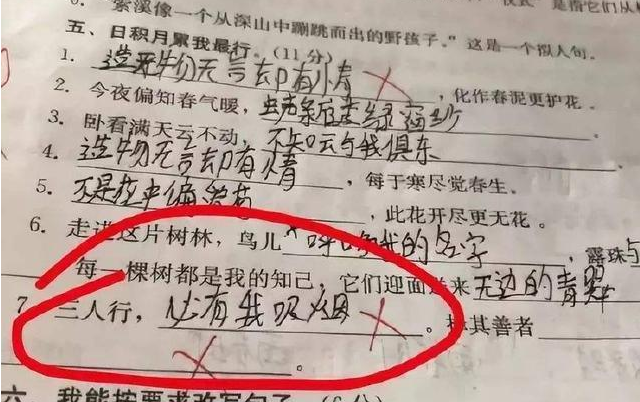 紫溪像一个从深山中蹦跳而出的野孩子。"这是一个拟人句。
五、日积月累我最行。(11分)
1. 造死物无言却有情，化作春泥更护花。
2. 今夜偏知春气暖，虫声条后查绿窗纱
3. 卧看满天云不动，不知云与我俱东
4. 造物无言却有情，每于寒尽觉春生。
5. 不是花中偏爱菊，此花开尽更无花。
6. 走进这片树林，鸟儿呼唤我的名字，露珠与
每一棵树都是我的知己，它们迎面送来无边的青翠
7 三人行，必有我吸烟。择其善者
。
六、我能按要求改写句子 (6分)